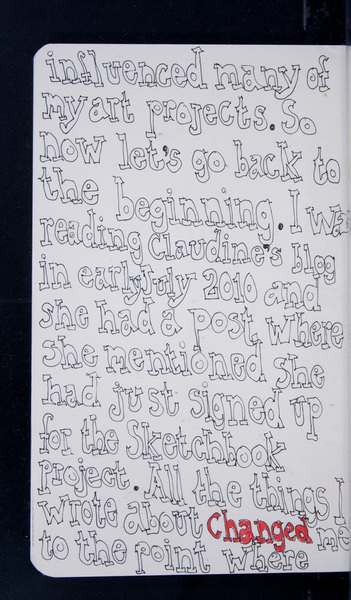 influenced many of
my art projects. So
now let's go back to
the beginning. I was
reading Claudine's blog
in early July 2010 and
she had a post where
she mentioned she
had just signed up
for the Sketchbook
Project. All the things I
wrote about Changed me
to the point where